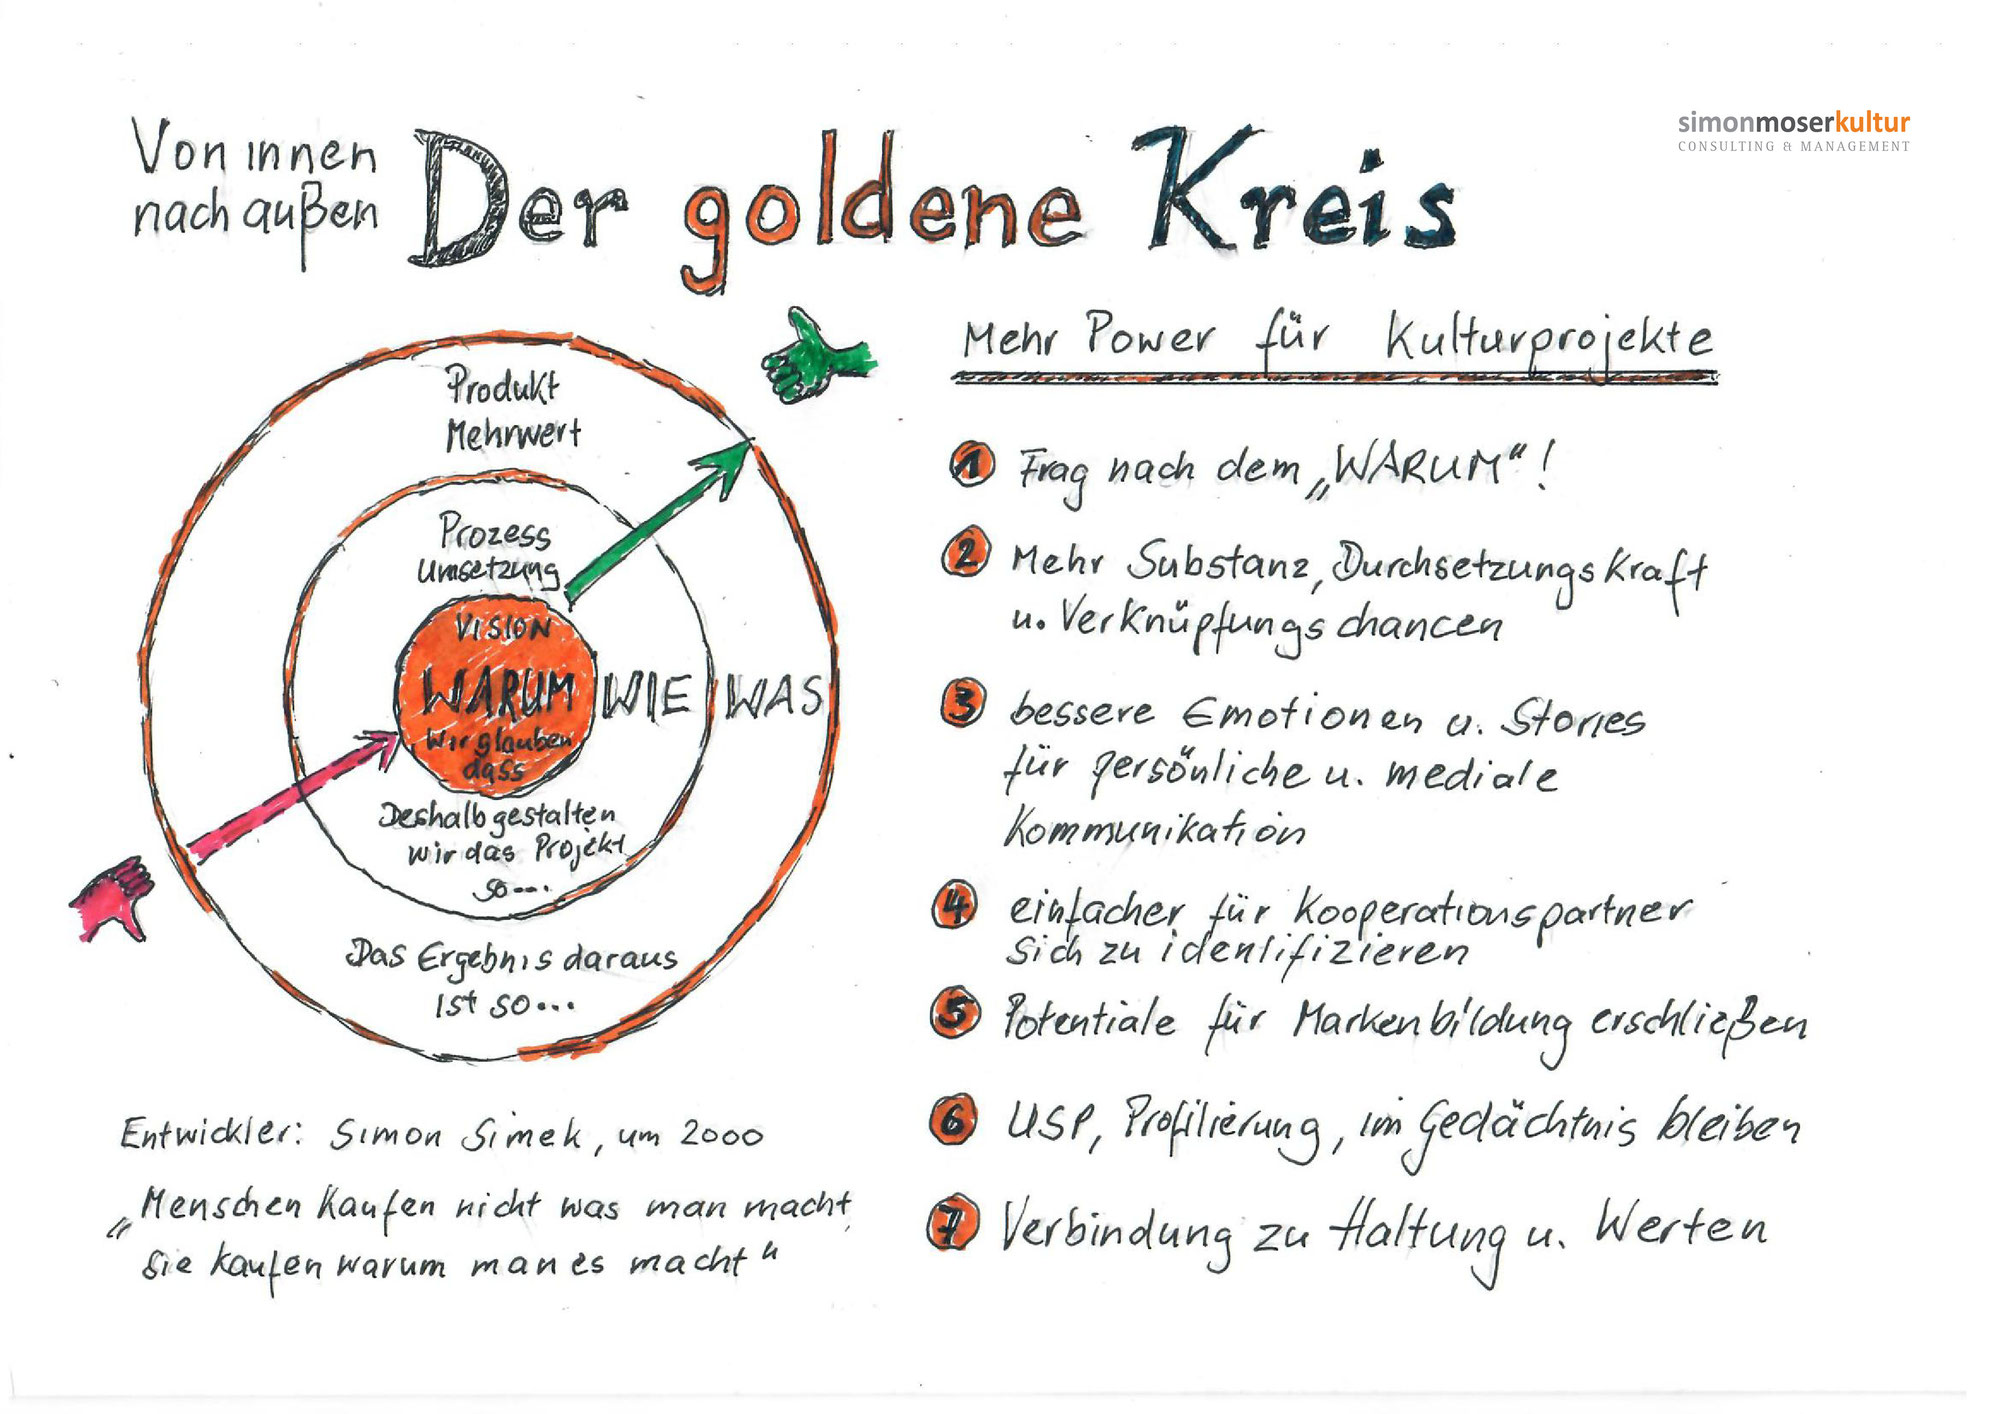 Von innen
nach außen
Der goldene Kreis
simonmoserkultur
CONSULTING & MANAGEMENT
Produkt
Mehrwert
Prozess
Umsetzung
VISION
WARUM WIE WAS
Wir glauben
dass
Deshalb gestalten
wir das Projekt
so...
Das Ergebnis daraus
ist so...
Entwickler: Simon Simek, um 2000
„Menschen kaufen nicht was man macht,
sie kaufen warum man es macht"
Mehr Power für Kulturprojekte
1 Frag nach dem „WARUM"!
2 Mehr Substanz, Durchsetzungskraft
u. Verknüpfungschancen
3 bessere Emotionen u. Stories
für persönliche u. mediale
Kommunikation
4 einfacher für Kooperationspartner
sich zu identifizieren
5 Potentiale für Markenbildung erschließen
6 USP, Profilierung, im Gedächtnis bleiben
7 Verbindung zu Haltung u. Werten